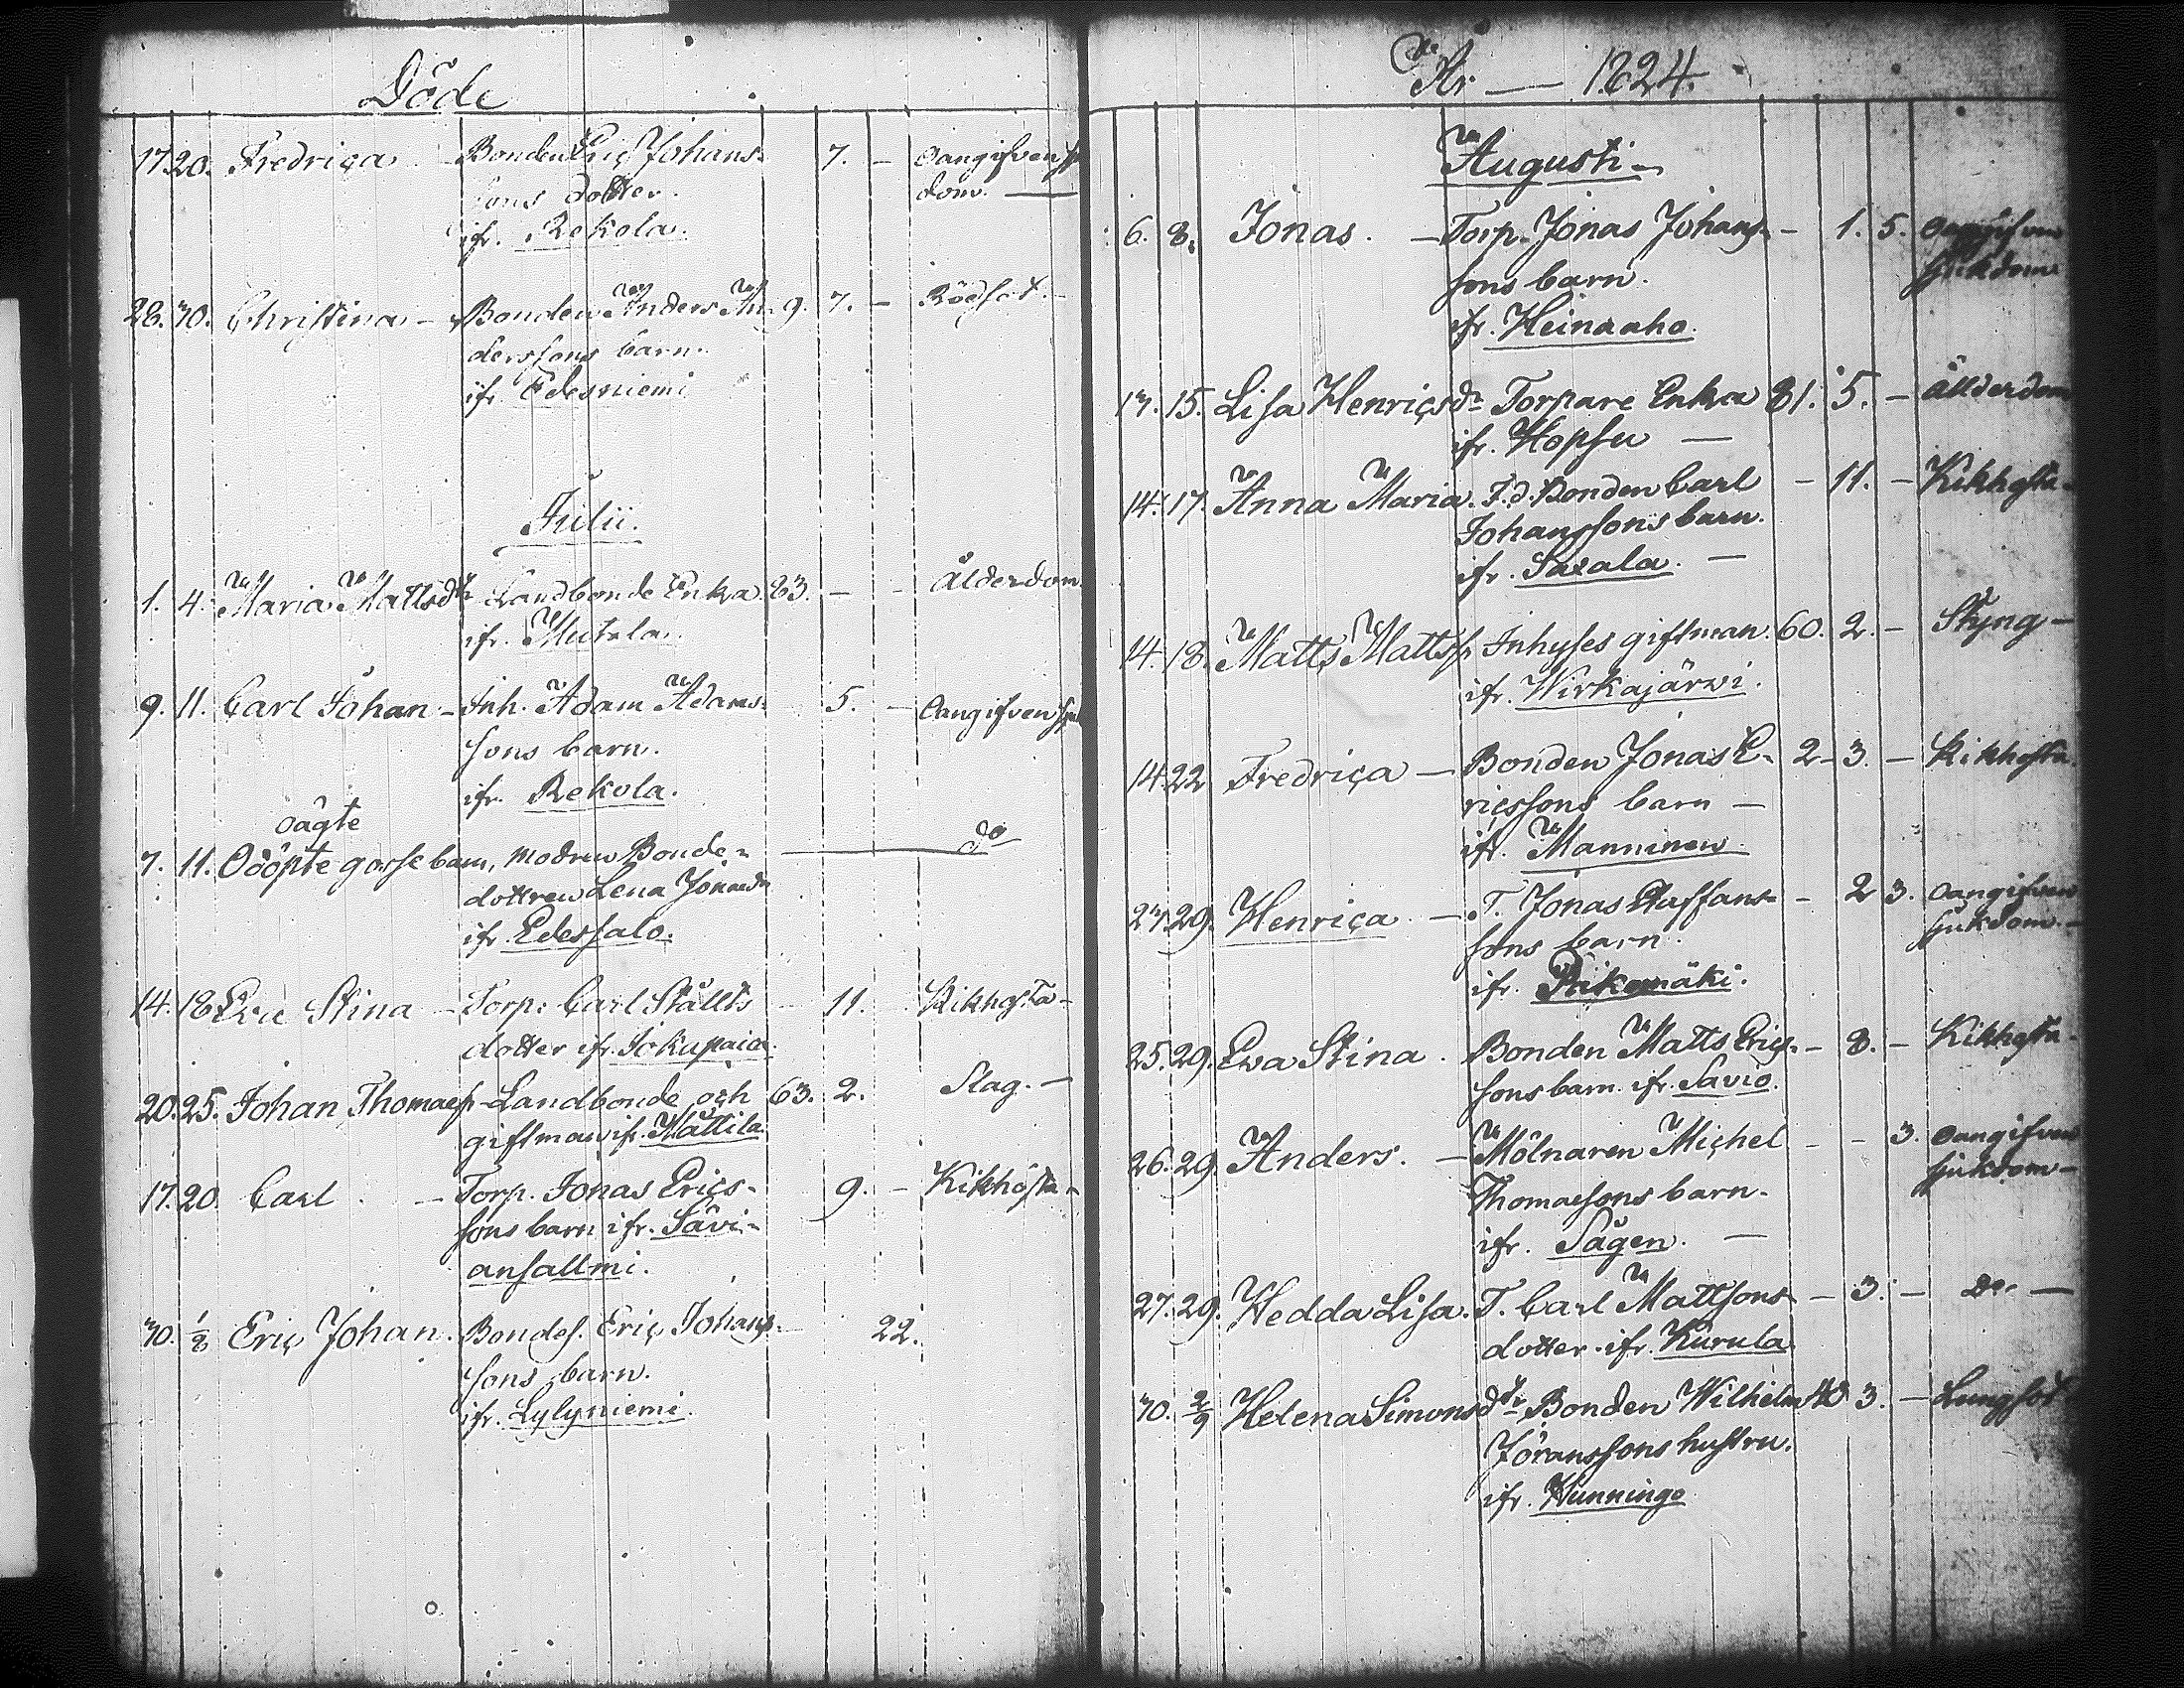 Döde
17. 20. Fredrica Bonden Eric Johans- 7. - Oangifven sjuk
sons dotter. dom.
ifr. Rekola.
28. 30. Christina - Bonden Anders An- 9. 7. - Rödsot.
derssons barn.
ifr. Edesniemi
Julii.
1. 4. Maria Mattsdr Landbonde Enka. 83. - - Ålderdom
ifr. Mutala.
9. 11. Carl Johan - Inh. Adam Adams- 5. - Oangifven sjuk
sons barn.
ifr. Rekola.
oägte
7. 11. Odöpte gossebarn, modren Bonde- do
dottren Lena Jonasdr
ifr. Edessalo.
14. 18. Eva Stina - Torp. Carl Stållts 11. Kikhosta -
dotter ifr. Jokupaica.
20. 25. Johan Thomaess. - Landbonde och 63. 2. Slag. -
giftman ifr. Mattila.
17. 20. Carl. - Torp. Jonas Erics- 9. - Kikhosta -
sons barn ifr. Savi-
ansallmi.
30. 1/8 Eric Johan. Bondes. Eric Johans- 22.
sons barn.
ifr. Lylyniemi.
År - 1824.
Augusti -
6. 8. Jonas. - Torp. Jonas Johans- - 1. 5. Oangifven
sons barn. sjukdom
ifr. Heinaaho.
13. 15. Lisa Henricsdr Torpare Enka 81. 5. - Ållderdom
ifr. Hopsu -
14. 17. Anna Maria. F.d. Bonden Carl - 11. - Kikhosta -
Johanssons barn.
ifr. Saxala. -
14. 18. Matts Mattss. Inhyses giftman. 60. 2. - Styng -
ifr. Wirkajärvi.
14. 22 Fredrica - Bonden Jonas E- 2 - 3. - Kikhosta.
ricssons barn -
ifr. Manninen.
27. 29. Henrica - T. Jonas Staffans- - 2 3. Oangifven
sons barn. sjukdom. -
ifr. Pukamäki.
25. 29. Eva Stina. Bonden Matts Erics- - 8. - Kikhosta -
sons barn. ifr. Savio.
26. 29. Anders. - Mölnaren Michel - - 3. Oangifven
Thomaesons barn. sjukdom -
ifr. Sågen. -
27. 29. Hedda Lisa. T. Carl Mattsons - 3. - Do. -
dotter. ifr. Kurula.
30. 2/9 Helena Simonsdr Bonden Wilhelm 43 3. - Lungsot
Jöranssons hustru.
ifr. Hunningo